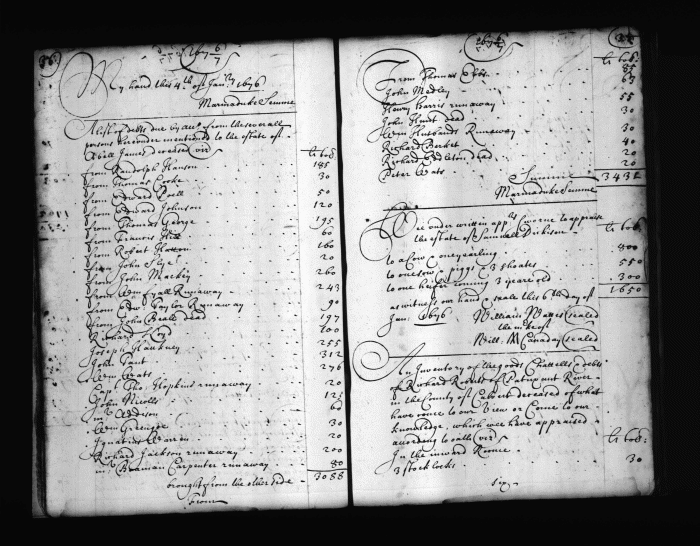 1676/7
My hand this 4th of Janry 1676
Marmaduke Semme
A list of debts due by acct from the severall
persons hereunder mentioned to the estate of
Abell James deceased vizt
li tob
from Randolph Hanson 185
from Thomas Cooke 30
from Edward
from Edward Johnson 120
from Thomas George 195
from Francis Hill 60
from Robert 160
from John 20
from John Mackey 260
from Wm Hall Runaway 243
from Edwd Taylor Runaway 90
from John Beale dead 197
Richard 200
Joseph Hackney 255
John Gant 312
Wm Wats 276
Capt Tho: Hopkins runaway 20
John Nicolls
mr Addison 60
Wm 30
Ignatius Warren 20
Richard Jackson runaway 200
mr Braman Carpenter runaway 80
3088
brought from the other side
from
1676/7
li tob:
From Thomas
John Medley
Henry Harris runaway 55
John Hunt dead 30
Wm Husbands Runaway 30
Richard Becket 40
Richard dead 20
Peter Wats 20
Summe 3432
Marmaduke Semme
Wee under written apprs sworne to appraise
the estate of Samuell Dickison
li tob:
to a Cow one yearling 800
to one sow piggs 3 shoates 550
to one heifer coming 3 yeare old 300
as witness our hand & seale this 6th day of 1650
Jan: 1676 William Wattes sealed
the marke of
Will: M Canaday sealed
An Inventory of the goods Chattells & debts
of Richard Robert of Patuxant River
in the County of Calvert deceased of what
have come to our View or Come to our
knowledge, which wee have appraised
according to vizt
In the inward Roome li tob:
3 stock locks 30
six